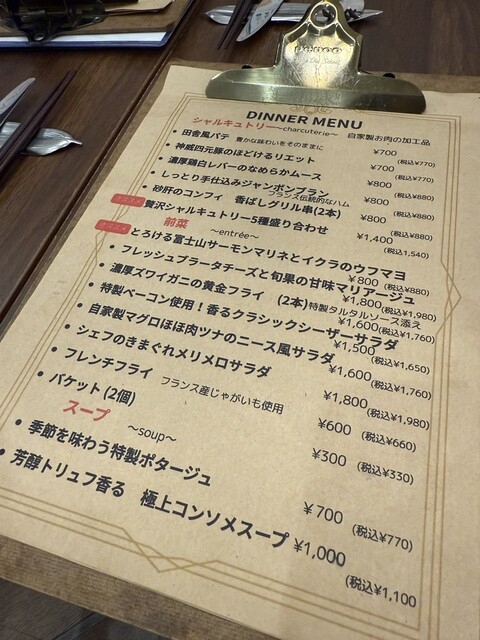 DINNER MENU
シャルキュトリー~charcuterie~ 自家製お肉の加工品
・田舎風パテ 豊かな味わいをそのままに ¥700 (税込¥770)
・神威四元豚のほどけるリエット ¥700 (税込¥770)
・濃厚鶏白レバーのなめらかムース ¥800 (税込¥880)
・しっとり手仕込みジャンボンブラン フランス伝統的なハム ¥800 (税込¥880)
・砂肝のコンフィ 香ばしグリル串(2本) ¥800 (税込¥880)
オススメ 贅沢シャルキュトリー5種盛り合わせ ¥1,400 (税込1,540)
前菜
~entrée~
オススメ とろける富士山サーモンマリネとイクラのウフマヨ ¥800 (税込¥880)
・フレッシュブラータチーズと旬果の甘味マリアージュ ¥1,800 (税込¥1,980)
・濃厚ズワイガニの黄金フライ (2本)特製タルタルソース添え ¥1,600 (税込¥1,760)
・特製ベーコン使用!香るクラシックシーザーサラダ ¥1,500 (税込¥1,650)
・自家製マグロほほ肉ツナのニース風サラダ ¥1,600 (税込¥1,760)
・シェフのきまぐれメリメロサラダ ¥1,800 (税込¥1,980)
・フレンチフライ フランス産じゃがいも使用 ¥600 (税込¥660)
・バケット (2個) ¥300 (税込¥330)
スープ
~soup~
・季節を味わう特製ポタージュ ¥700 (税込¥770)
・芳醇トリュフ香る 極上コンソメスープ ¥1,000 (税込¥1,100)